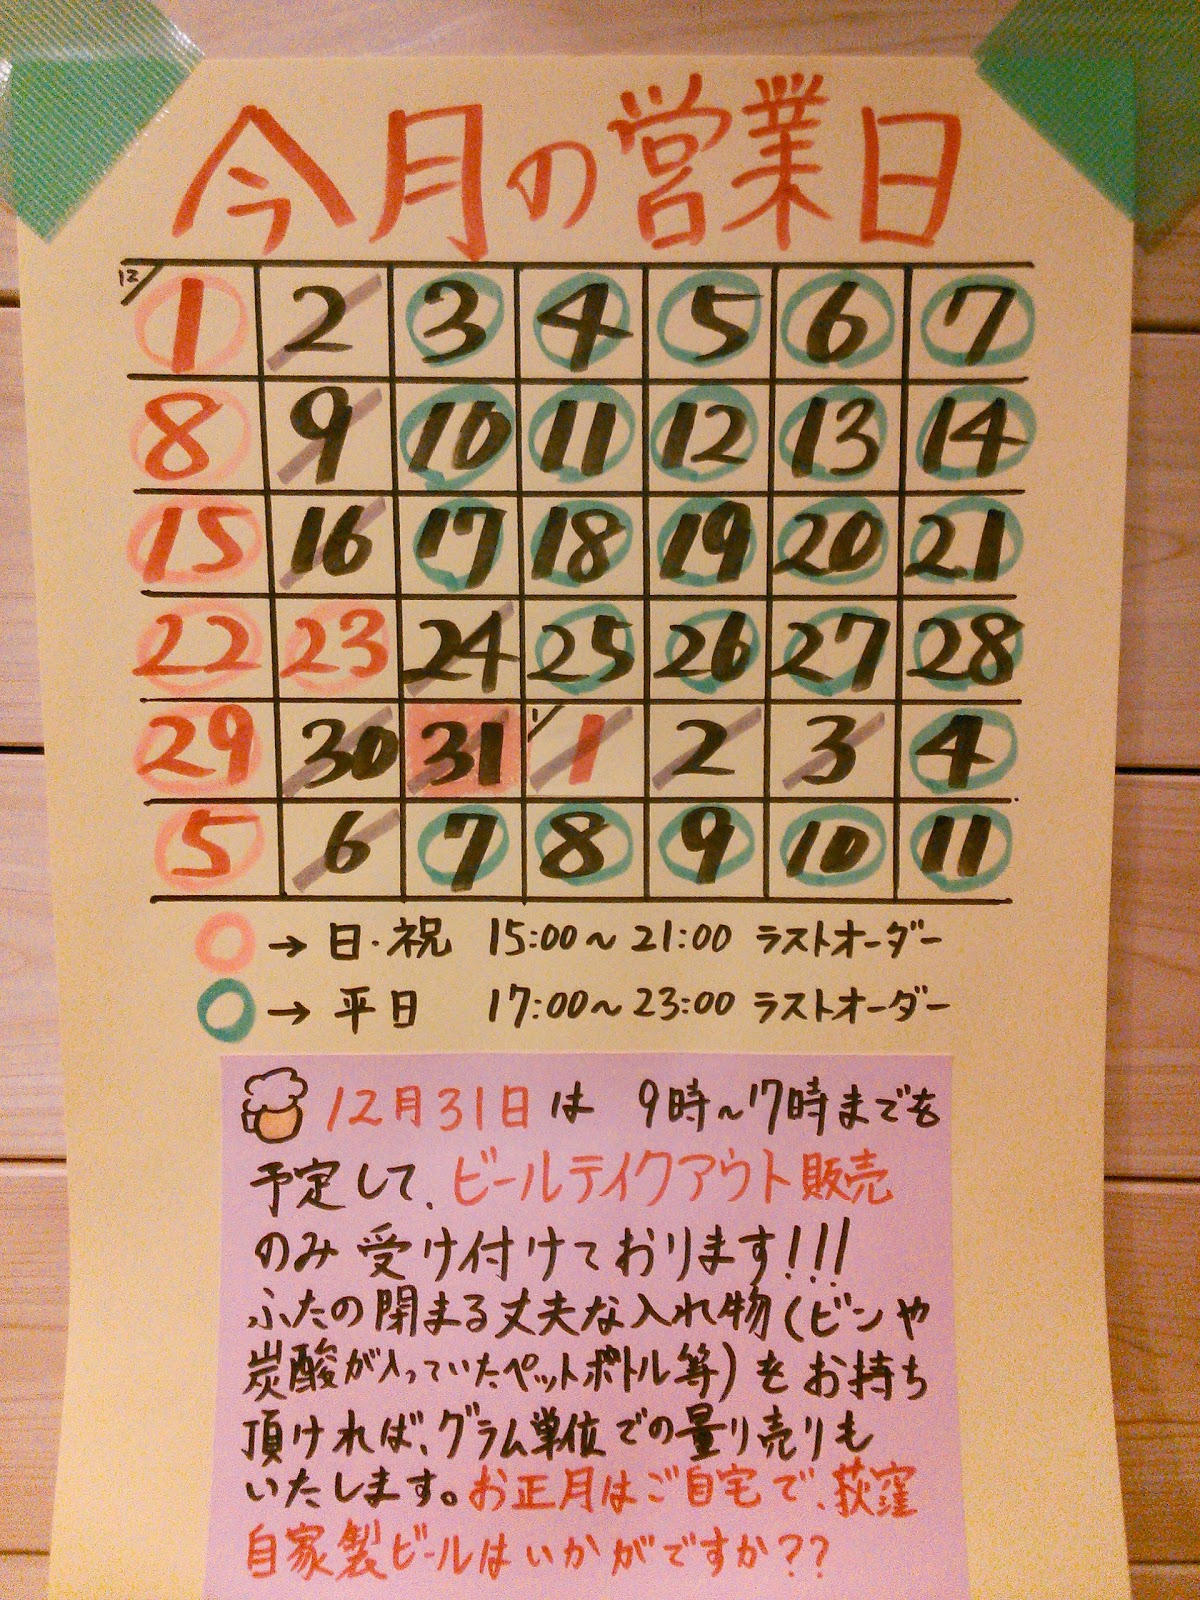 今月の営業日
12/ 1 2 3 4 5 6 7
8 9 10 11 12 13 14
15 16 17 18 19 20 21
22 23 24 25 26 27 28
29 30 31 1/ 1 2 3 4
5 6 7 8 9 10 11
○→日・祝 15:00~21:00 ラストオーダー
○→平日 17:00~23:00 ラストオーダー
12月31日は 9時~17時までを
予定して、ビールテイクアウト販売
のみ受け付けております!!!
ふたの閉まる丈夫な入れ物(ビンや
炭酸が入っていたペットボトル等)をお持ち
頂ければ、グラム単位での量り売りも
いたします。お正月はご自宅で、荻窪
自家製ビールはいかがですか??